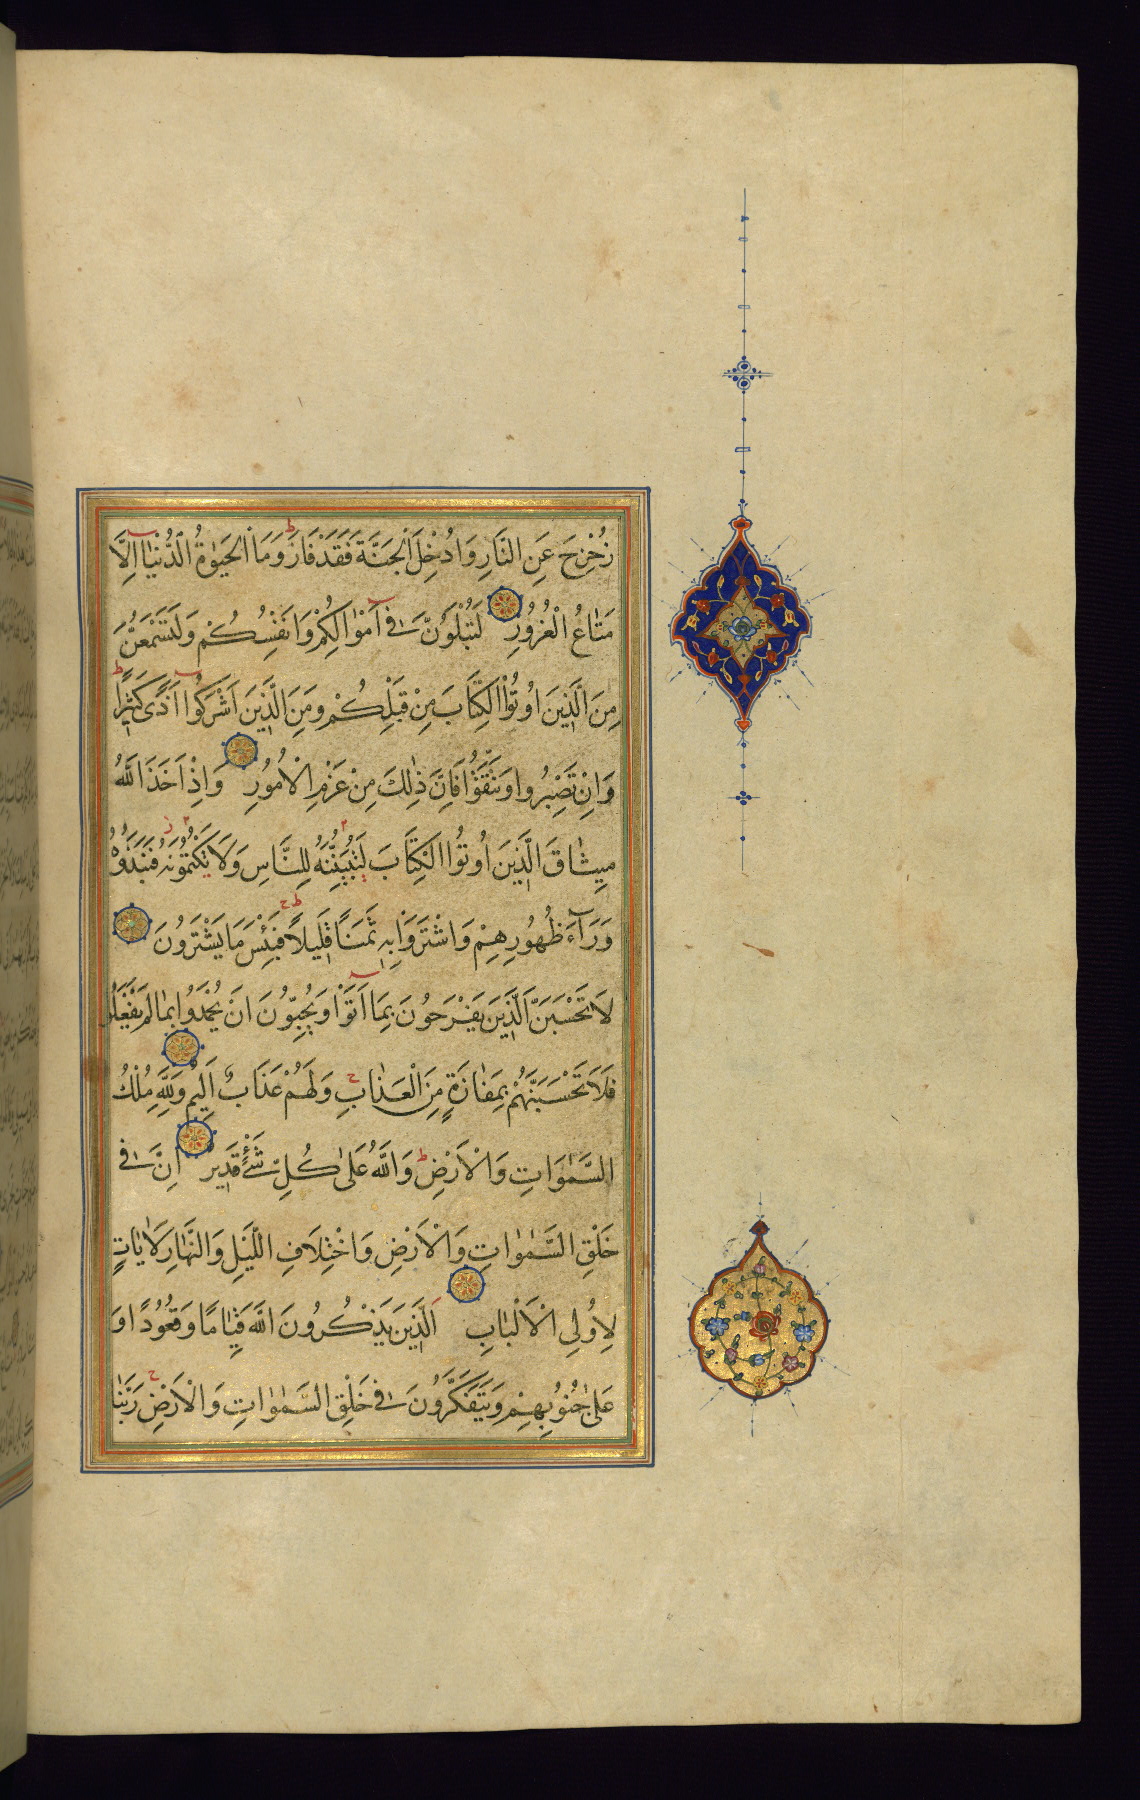 زُحْزِحَ عَنِ النَّارِ وَاُدْخِلَ الْجَنَّةَ فَقَدْ فَازَ وَمَا الْحَيٰوةُ الدُّنْيَا اِلَّا
مَتَاعُ الْغُرُورِ لَتُبْلَوُنَّ فٰى اَمْوَالِكُمْ وَاَنْفُسِكُمْ وَلَتَسْمَعُنَّ
مِنَ الَّذِينَ اُوتُوا الْكِتَابَ مِنْ قَبْلِكُمْ وَمِنَ الَّذِينَ اَشْرَكُوا اَذًى كَثِيرًا
وَاِنْ تَصْبِرُوا وَتَتَّقُوا فَاِنَّ ذٰلِكَ مِنْ عَزْمِ الْاُمُورِ وَاِذْ اَخَذَ اللّٰهُ
مِيثَاقَ الَّذِينَ اُوتُوا الْكِتَابَ لَتُبَيِّنُنَّهُ لِلنَّاسِ وَلَا تَكْتُمُونَهُ فَنَبَذُوهُ
وَرَآءَ ظُهُورِهِمْ وَاشْتَرَوْا بِهِ ثَمَنًا قَلِيلًا فَبِئْسَ مَا يَشْتَرُونَ
لَا تَحْسَبَنَّ الَّذِينَ يَفْرَحُونَ بِمَا اَتَوْا وَيُحِبُّونَ اَنْ يُحْمَدُوا بِمَا لَمْ يَفْعَلُوا
فَلَا تَحْسَبَنَّهُمْ بِمَفَازَةٍ مِنَ الْعَذَابِ وَلَهُمْ عَذَابٌ اَلِيمٌ وَلِلّٰهِ مُلْكُ
السَّمٰوَاتِ وَالْاَرْضِ وَاللّٰهُ عَلٰى كُلِّ شَىْءٍ قَدِيرٌ اِنَّ فٰى
خَلْقِ السَّمٰوَاتِ وَالْاَرْضِ وَاخْتِلَافِ اللَّيْلِ وَالنَّهَارِ لَاٰيَاتٍ
لِاُولِى الْاَلْبَابِ اَلَّذِينَ يَذْكُرُونَ اللّٰهَ قِيَامًا وَقُعُودًا وَ
عَلٰى جُنُوبِهِمْ وَيَتَفَكَّرُونَ فٰى خَلْقِ السَّمٰوَاتِ وَالْاَرْضِ رَبَّنَا